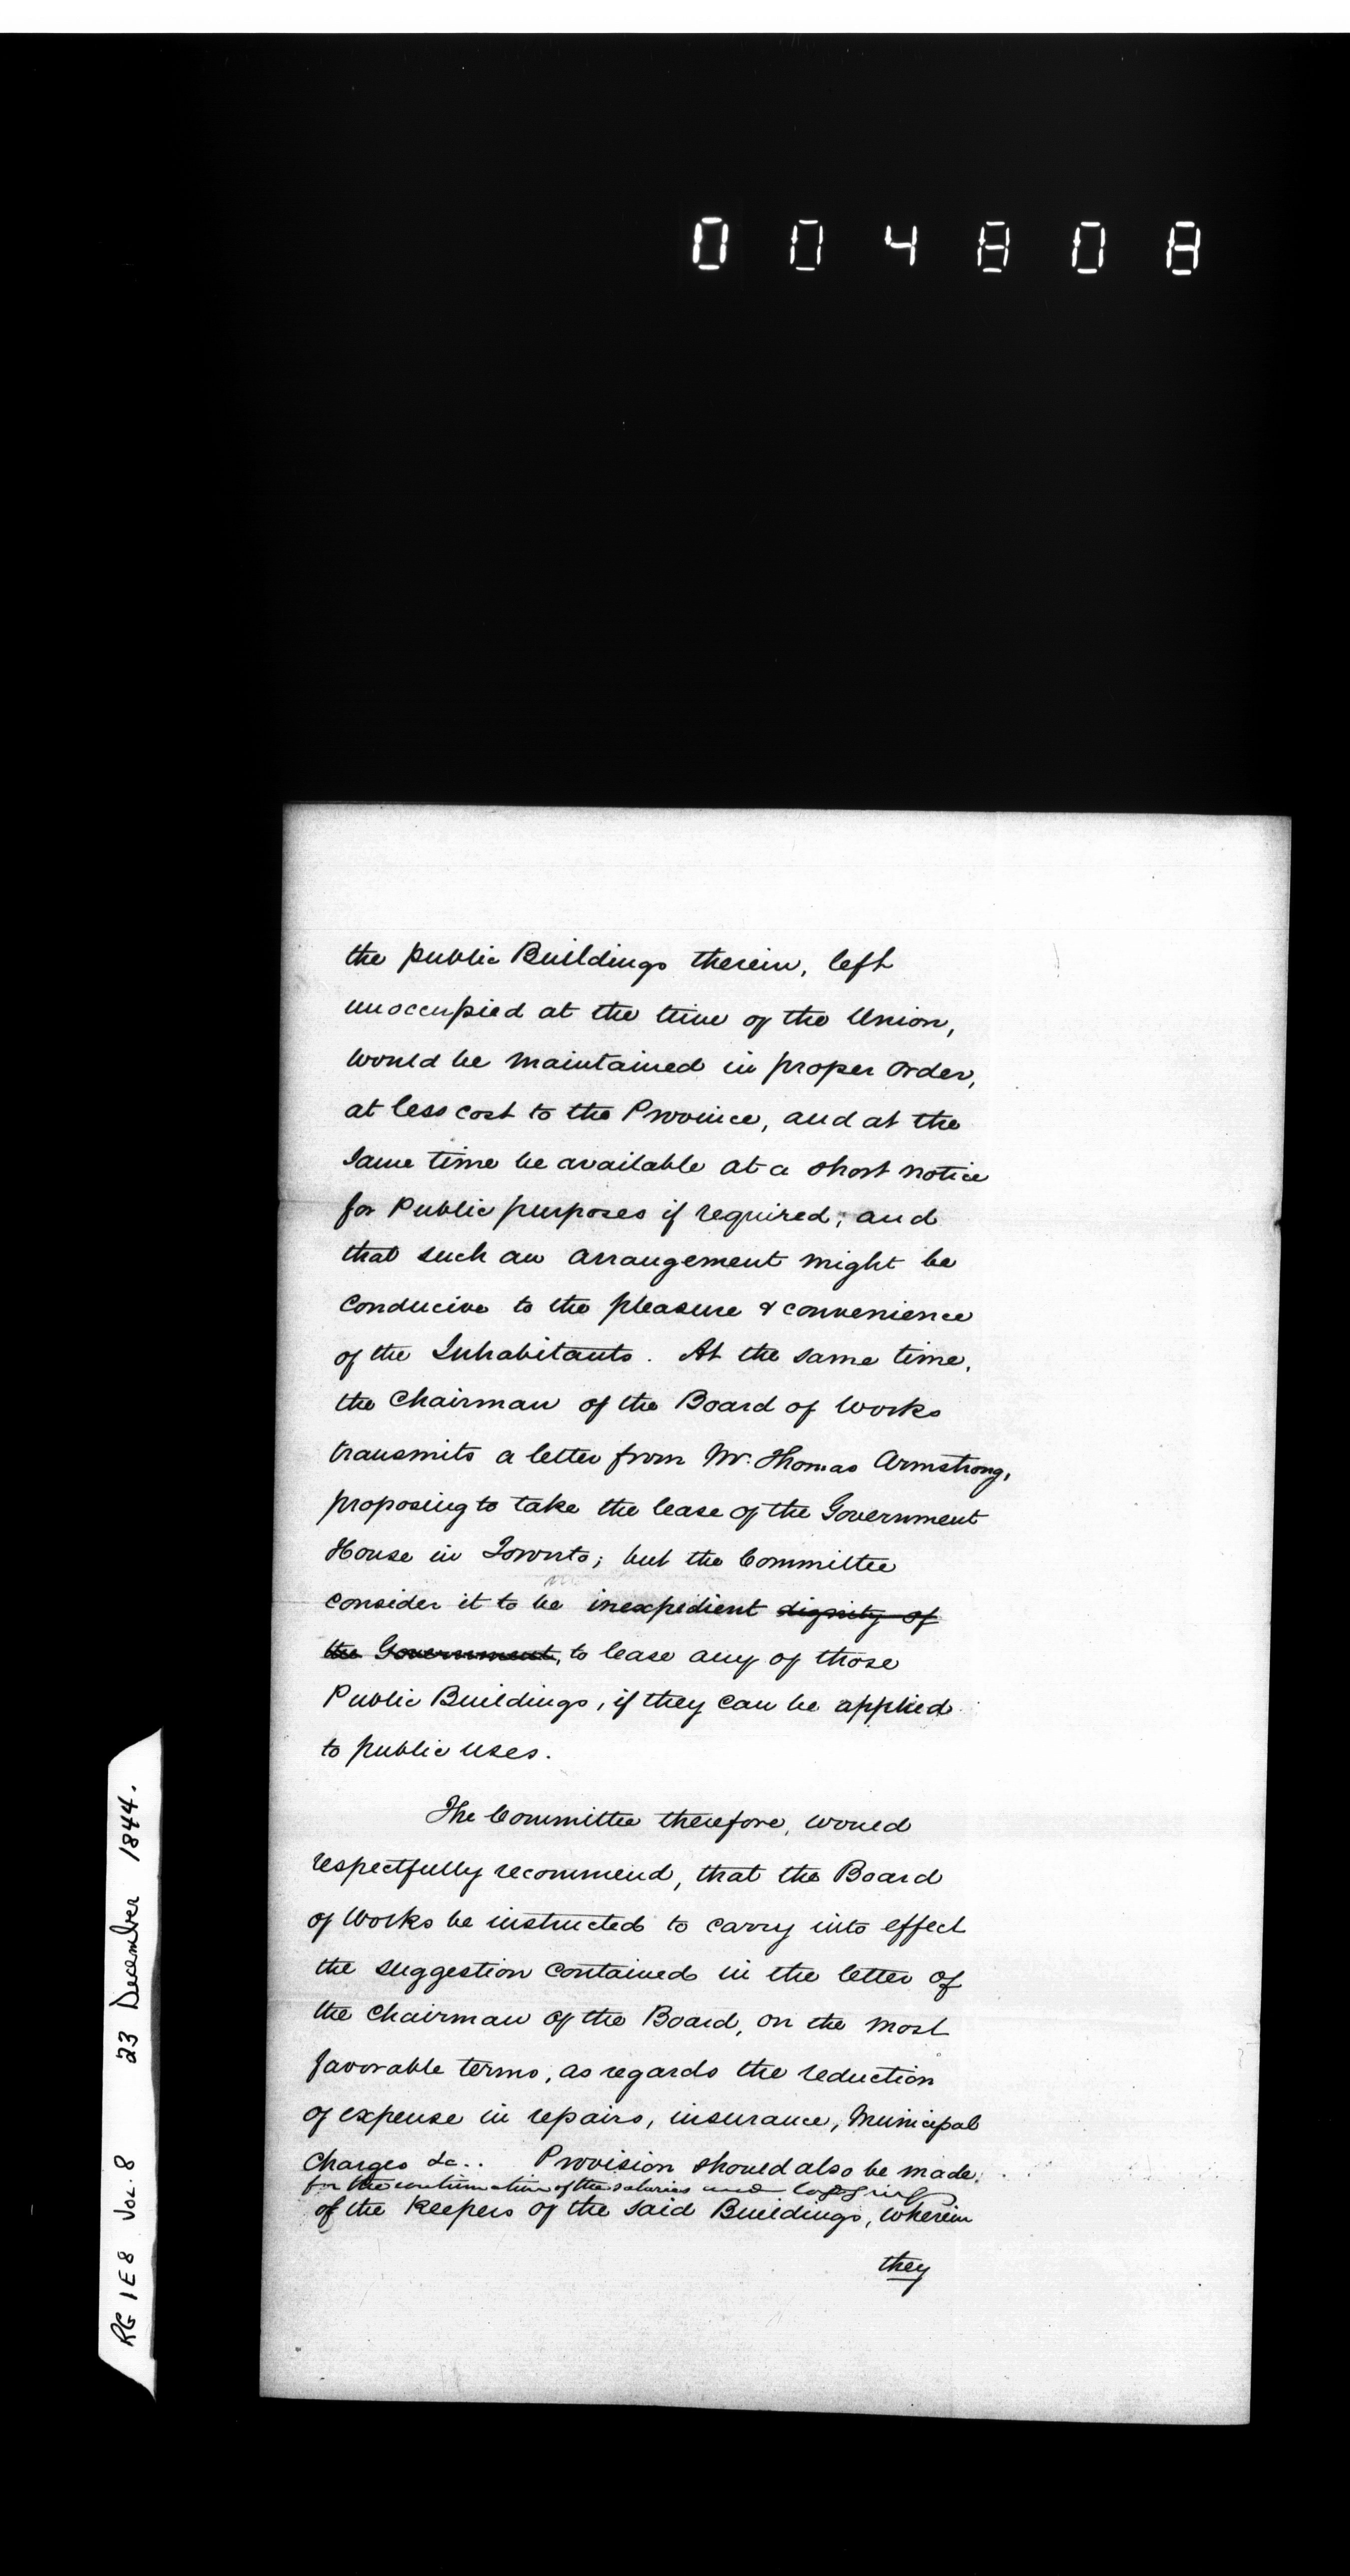 004808
the public Buildings therein, left
unoccupied at the time of the Union,
would be maintained in proper order,
at less cost to the Province, and at the
same time be available at a short notice
for Public purposes if required; and
that such an arrangement might be
conducive to the pleasure & convenience
of the Inhabitants. At the same time,
the Chairman of the Board of Works
transmits a letter from Mr. Thomas Armstrong,
proposing to take the lease of the Government
House in Toronto; but the Committee
consider it to be inexpedient dignity of
the Government, to lease any of those
Public Buildings, if they can be applied
to public uses.
The Committee therefore, would
respectfully recommend, that the Board
of Works be instructed to carry into effect
the suggestion contained in the letter of
the Chairman of the Board, on the most
favorable terms, as regards the reduction
of expense in repairs, insurance, Municipal
Charges &c.. Provision should also be made
for the continuation of the salaries and lodging
of the Keepers of the said Buildings, wherein
they
RG 1 E 8 Vol. 8 23 December 1844.